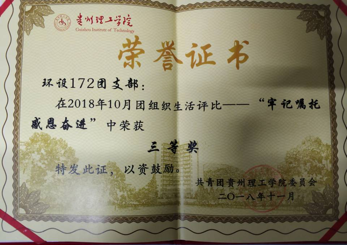 贵州理工学院
Guizhou Institute of Technology
荣誉证书
环设172团支部：
在2018年10月团组织生活评比——“牢记嘱托
感恩奋进”中荣获
三等奖
特发此证，以资鼓励。
共青团贵州理工学院委员会
二〇一八年十一月